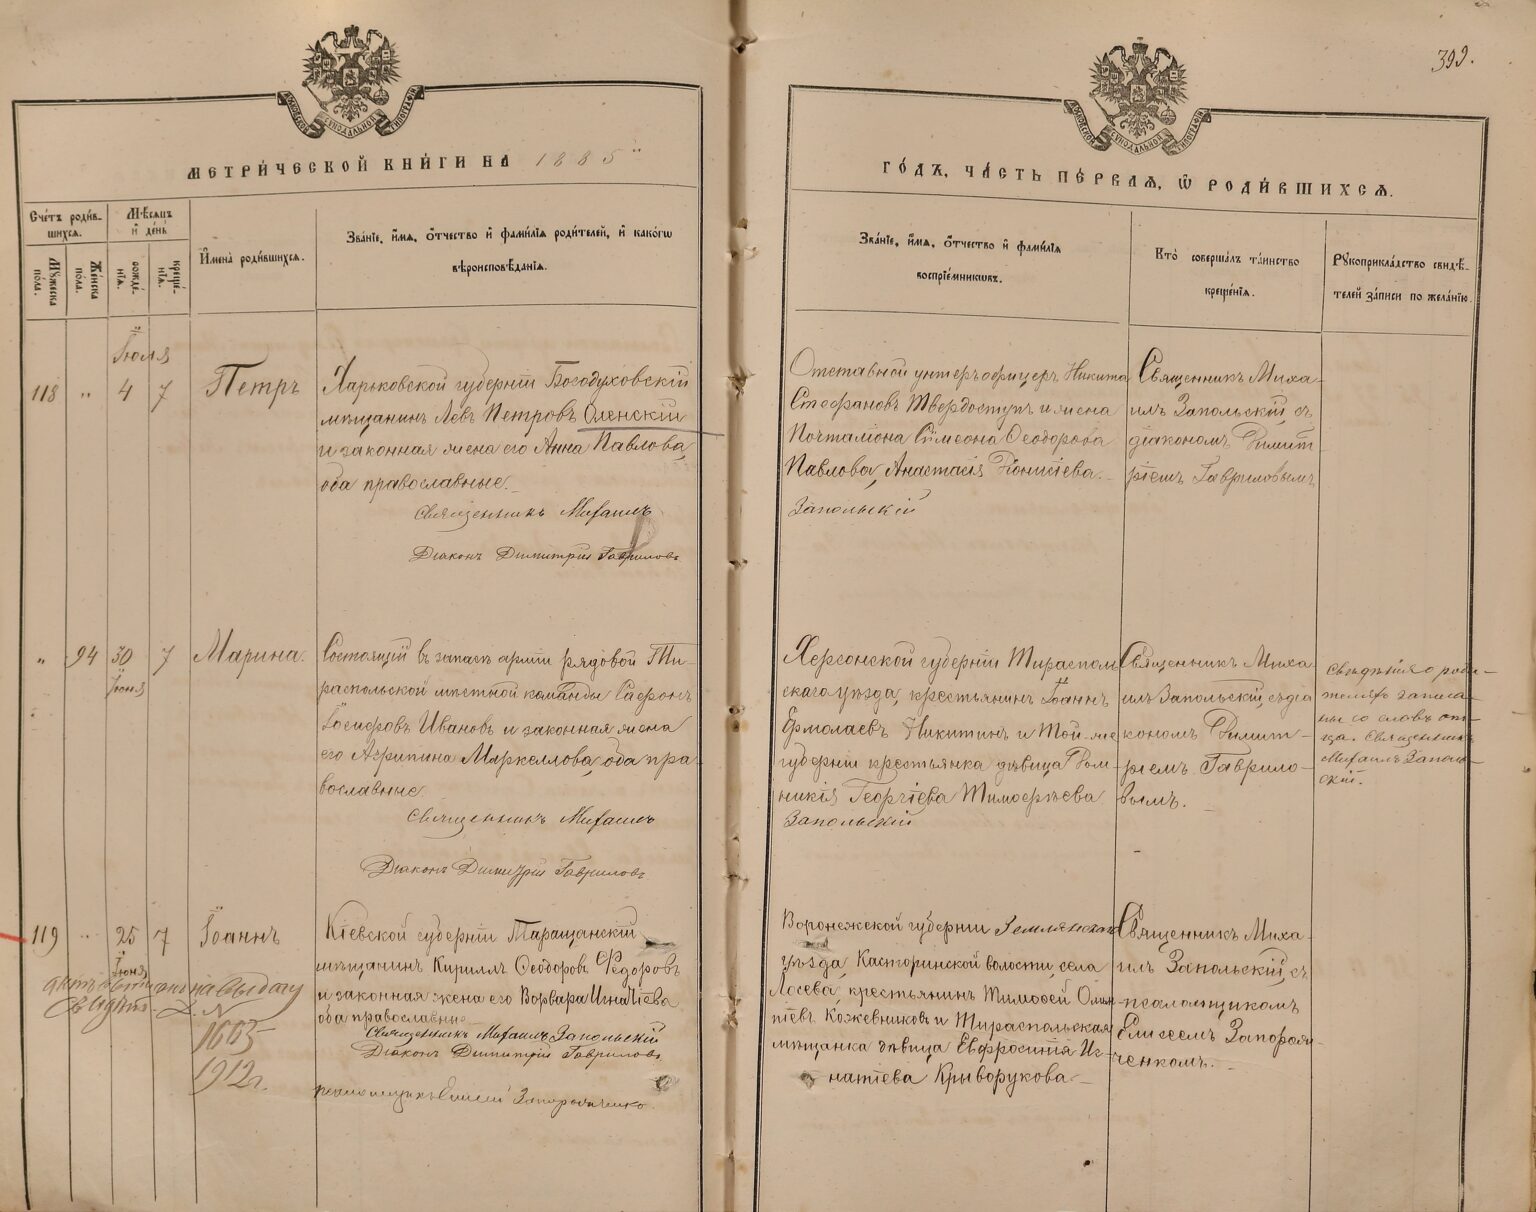 399.
МОСКОВСКОЙ СѴНОДАЛЬНОЙ ТИПОГРАФІИ
МОСКОВСКОЙ СѴНОДАЛЬНОЙ ТИПОГРАФІИ
МЕТРИ́ЧЕСКОЙ КНИ́ГИ НА 1885
ГО́ДЪ, ЧА́СТЬ ПЕ́РВАѦ, Ѡ҆ РОДИ́ВШИХСѦ.
Сче́тъ роди́в-
шихсѧ.
Мꙋжеска по́ла.
Же́нска по́ла.
Мѣ́сѧцъ и҆ де́нь
рожде́-
нїѧ.
креще́-
нїѧ.
И҆мена̀ роди́вшихсѧ.
Зва́нїе, и҆́мѧ, ѻ҆́тчество и҆ фами́лїѧ роди́телей, и҆ како́гѡ
вѣроисповѣ́данїѧ.
Зва́нїе, и҆́мѧ, ѻ҆́тчество и҆ фами́лїѧ
воспрїе́мникѡвъ.
Кто̀ соверша́лъ та́инство
креще́нїѧ.
Рꙋкоприкла́дство свидѣ́-
телей за́писи по жела́нїю.
Іюля
118 " 4 7 Петръ
Харьковской губерніи Богодуховскій
мѣщанинъ Левъ Петровъ Оленскій
и законная жена его Анна Павлова,
оба православные.
Священникъ Михаилъ
Діаконъ Димитрій Гавриловъ
Отставной унтеръ офицеръ Никита
Стефановъ Твердоступъ и жена
Почталіона Сѵмеона Ѳеодорова
Павлова, Анастасія Діонисіева.
Запольскій
Священникъ Миха-
илъ Запольскій съ
діакономъ Димит
ріемъ Гавриловымъ
" 94 30 7 Марина.
Іюня
Состоящій въ запасѣ арміи рядовой Ти-
распольской мѣстной команды Сафронъ
Іосифовъ Ивановъ и законная жена
его Агрипина Маркеллова, оба пра-
вославные
Священникъ Михаилъ
Діаконъ Димитрій Гавриловъ
Херсонской губерніи Тирасполь
скаго уѣзда, крестьянинъ Іоаннъ
Ермолаевъ Никитинъ и той-же
губерніи крестьянка дѣвица Дом-
никія Георгіева Тимофѣева
Запольскій
Священникъ Миха-
илъ Запольскій, съ діа
кономъ Димит-
ріемъ Гаврило-
вымъ.
Свѣдѣнія о роди-
теляхъ записа-
ны со словъ от-
ца. Священникъ
Михаилъ Заполь-
скій.
119 " 25 7 Іоаннъ
Іюня
на выдачу
№
1665
1912 г.
Кіевской губерніи Таращанскій
мѣщанинъ Кириллъ Ѳеодоровъ Ѳедоровъ
и законная жена его Ворвара Игнатіева
оба православные
Священникъ Михаилъ Запольскій
Діаконъ Димитрій Гавриловъ
псаломщикъ Елисей Запорожченко.
Воронежской губерніи Землянскаго
уѣзда, Касторинской волости, села
Лосева, крестьянинъ Тимофей
Кожевниковъ и Тираспольская
мѣщанка дѣвица Евфросинія Иг-
натіева Крыворукова
Священникъ Миха-
илъ Запольскій, съ
псаломщикомъ
Елисеемъ Запорож-
ченкомъ.